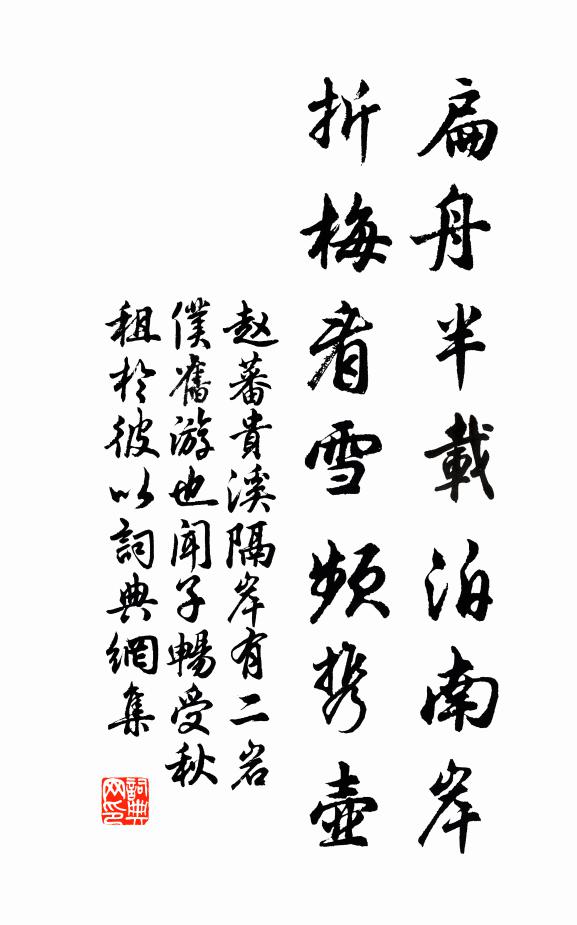 扁舟半載泊南岸
折梅看雪頻携壺
赵蕃貴溪隔岸有二岩
僕舊游也聞子暢受秋
租於彼以詞典網集
詞典网印